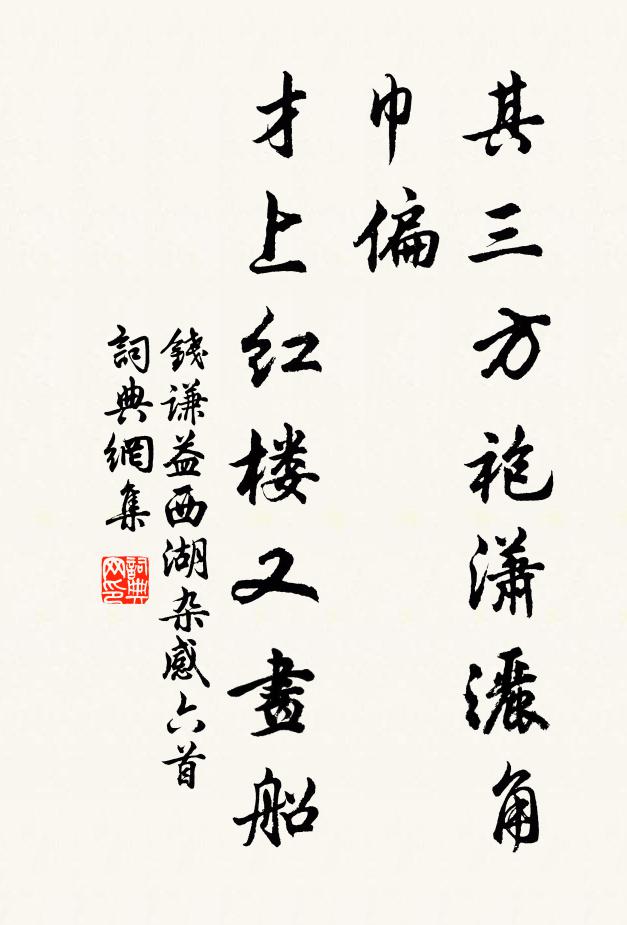 其三方袍潇灑角
巾偏
才上红楼又畫船
錢谦益西湖杂感六首
詞典網集
詞典网印